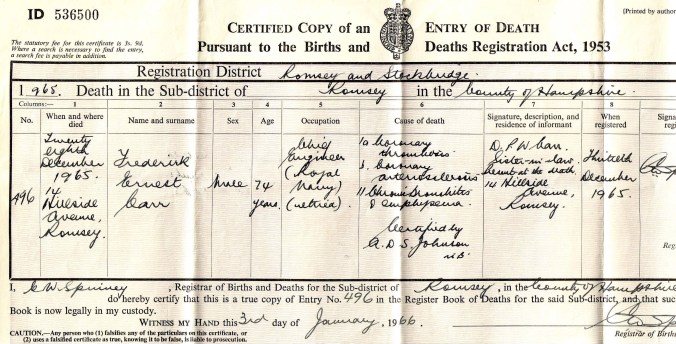 ID 536500
CERTIFIED COPY of an ENTRY OF DEATH
Pursuant to the Births and Deaths Registration Act, 1953
[Printed by author
The statutory fee for this certificate is 3s. 9d.
Where a search is necessary to find the entry,
a search fee is payable in addition.
Registration District Romsey and Stockbridge.
1965. Death in the Sub-district of Romsey in the County of Hampshire.
Columns:— 1 2 3 4 5 6 7 8
No. When and where died Name and surname Sex Age Occupation Cause of death Signature, description, and residence of informant When registered Signa regis
496
Twenty
eighth
December
1965.
14
Hillside
Avenue,
Romsey.
Frederick
Ernest
Carr
Male
74
years.
Chief
Engineer
(Royal
Navy)
(retired).
1a Coronary
thrombosis
b. Coronary
arteriosclerosis
11 Chronic bronchitis
& emphysema.
Certified by
A.D.S. Johnson
M.B.
D. P. W. Carr.
Sister-in-law.
Present at the death
14 Hillside
Avenue,
Romsey.
Thirtieth
December
1965.
Reg
I, C W Spinney, Registrar of Births and Deaths for the Sub-district of Romsey, in the County of Hampshire
do hereby certify that this is a true copy of Entry No. 496 in the Register Book of Deaths for the said Sub-district, and that such
Book is now legally in my custody.
WITNESS MY HAND this 3rd day of January, 1966.
CAUTION.—Any person who (1) falsifies any of the particulars on this certificate, or
(2) uses a falsified certificate as true, knowing it to be false, is liable to prosecution.
Registrar of Births